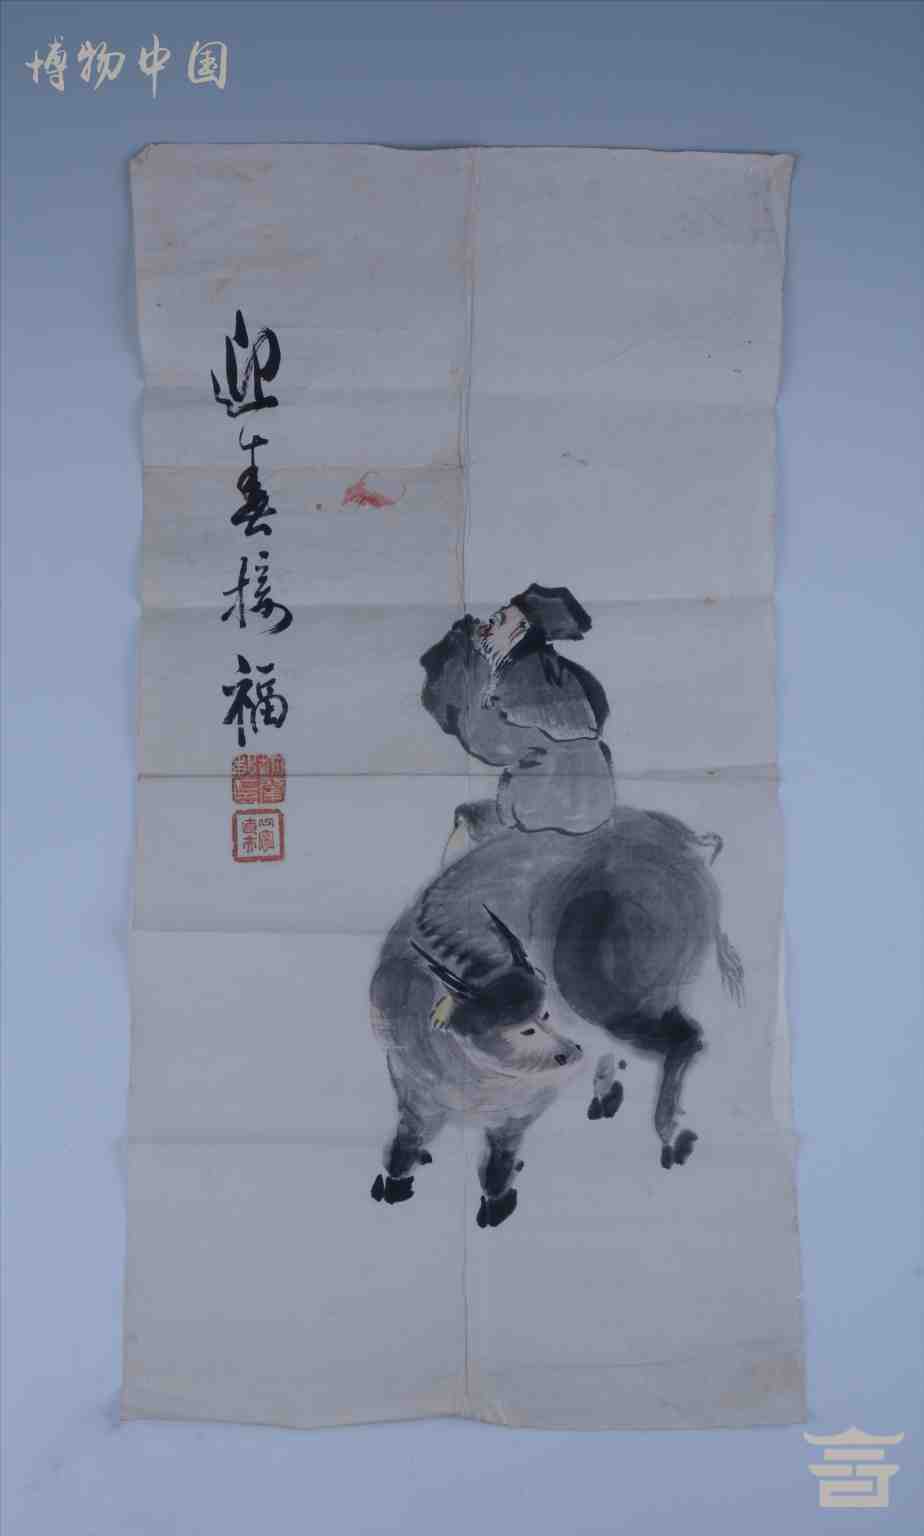 博物中国
迎春接福